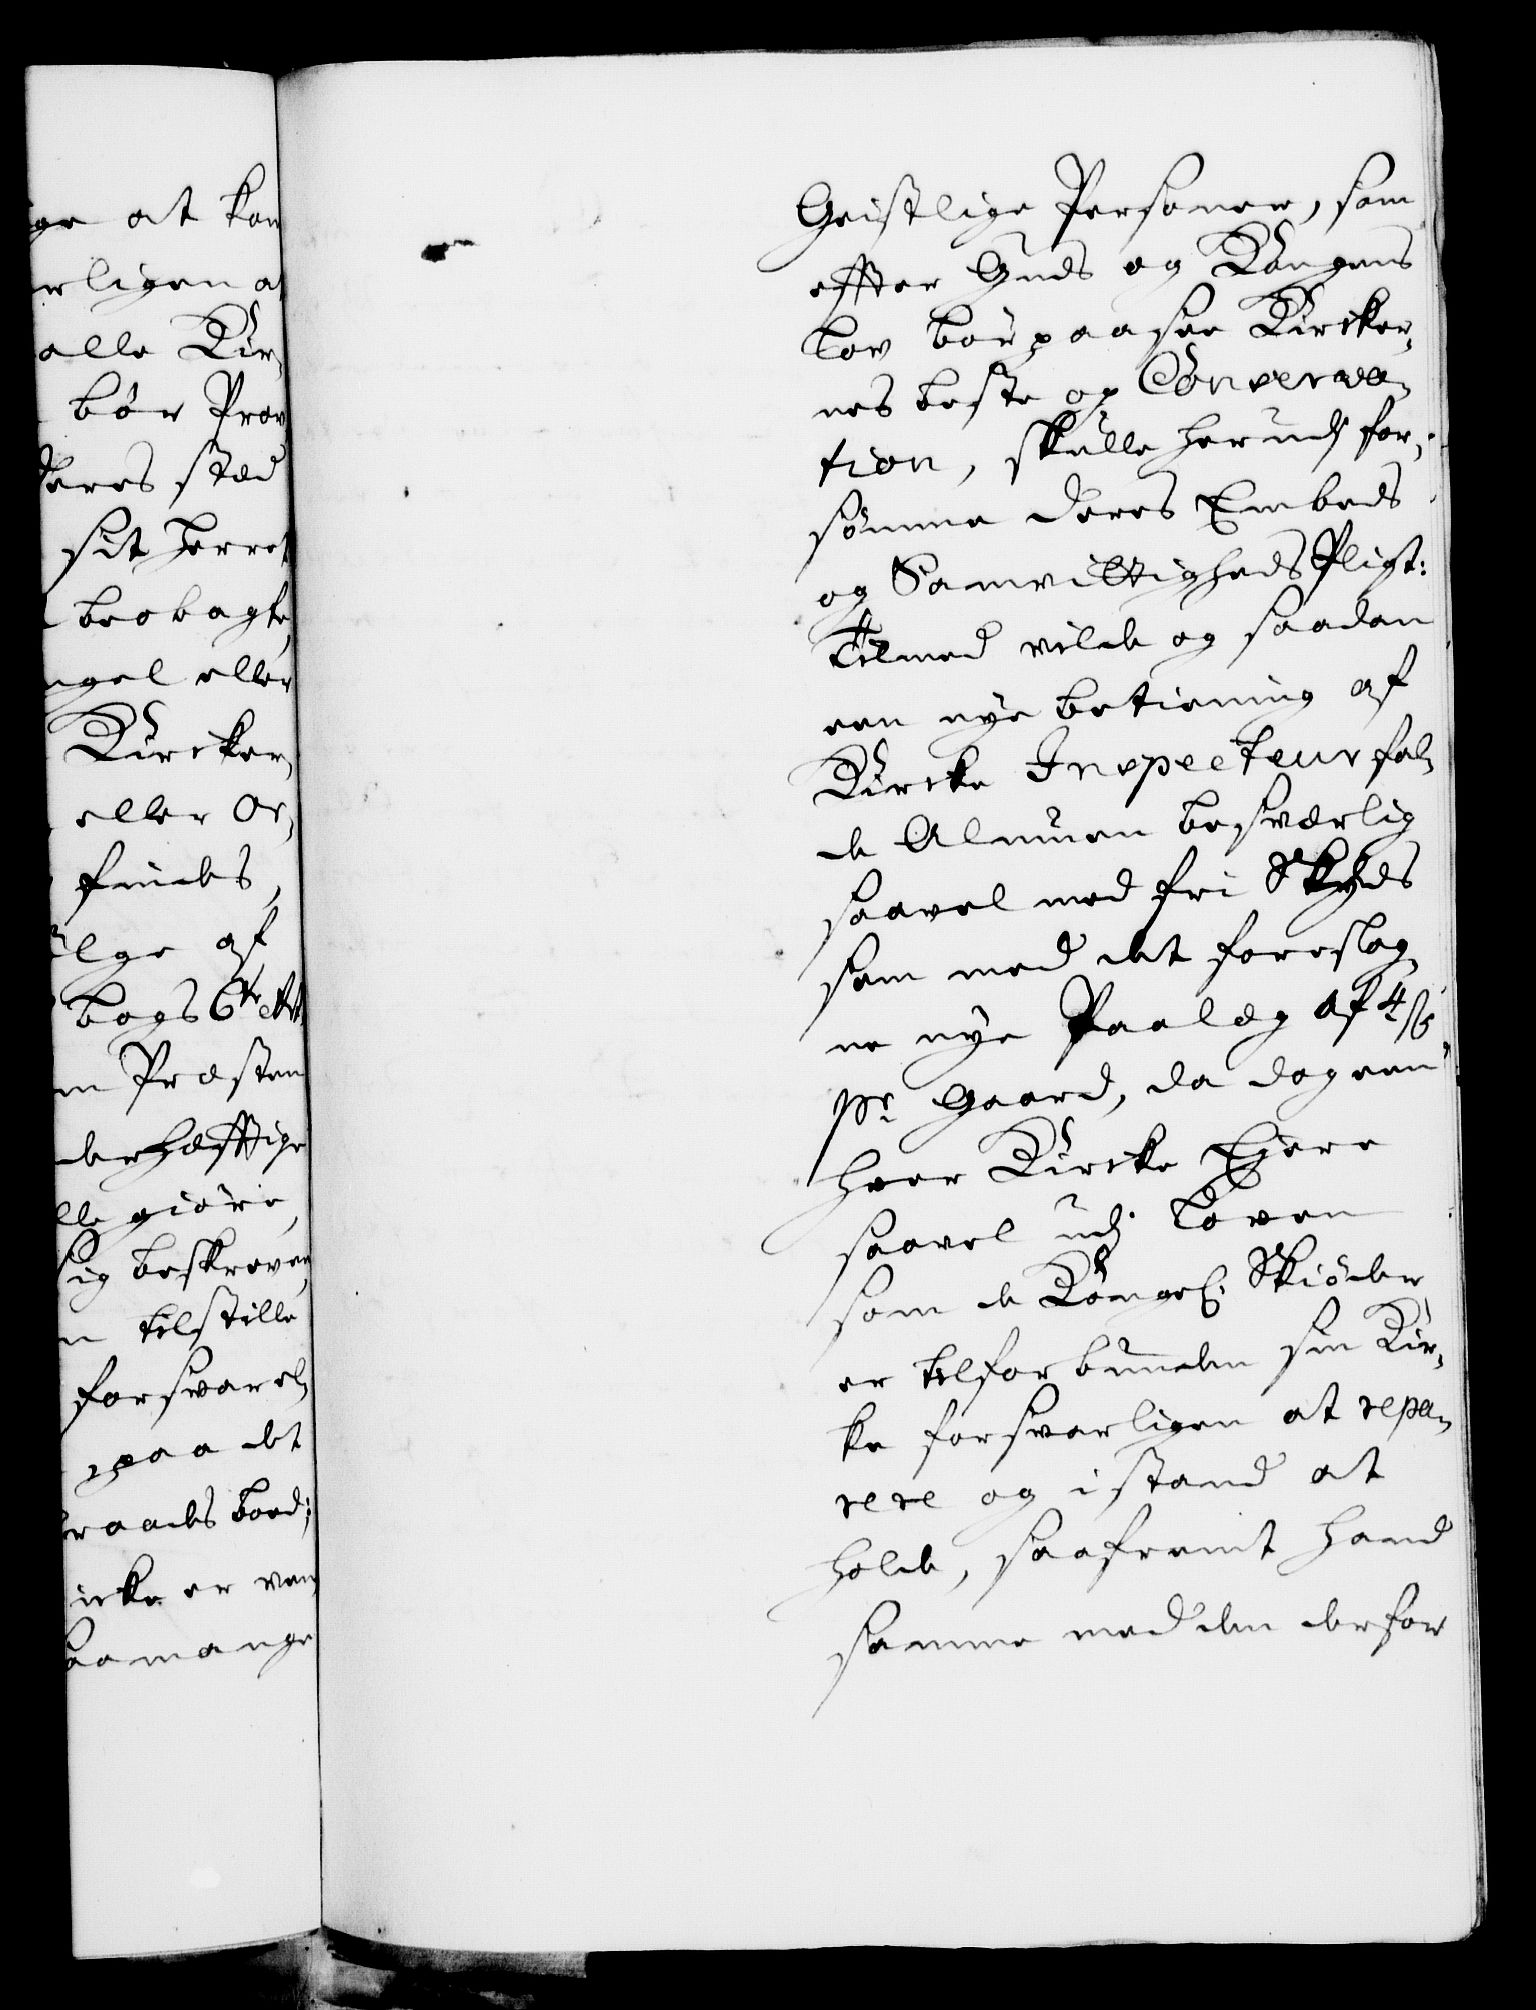 ge at kon
erligen at
alle Kir,
bör Prov
deres stæd
sit Herret
beobagte,
ngel eller
Kircker,
eller Or,
findes,
ülge af
bogs 6te Art
n Præsten
derhæfftige
lle giöre,
ig beskreven
n tilstille
forsvarel,
paa det
raads bud;
icke er ven
aamange
Geistlige Personer, som
effter Guds og Kongens
Lov bör paasee Kircker,
nes beste og Conserva,
tion, skulle herudj for,
sömme deres Embeds
og Samvittigheds Pligt:
Tilmed vilde og saadan
een nye betiening af
Kircke Inspecteur fal,
de Almuen besværlig
saavel med fri Skyds
som med det foreslag,
ne nye Paalæg af 4 ß
pr Gaard, da dog een
hver Kircke Ejere
saavel udj Loven
som de Kongel. Skiöder
er tilforbunden sin Kir,
ke forsvarligen at repa,
rere og i stand at
holde, saafremt hand
samme med den derfor